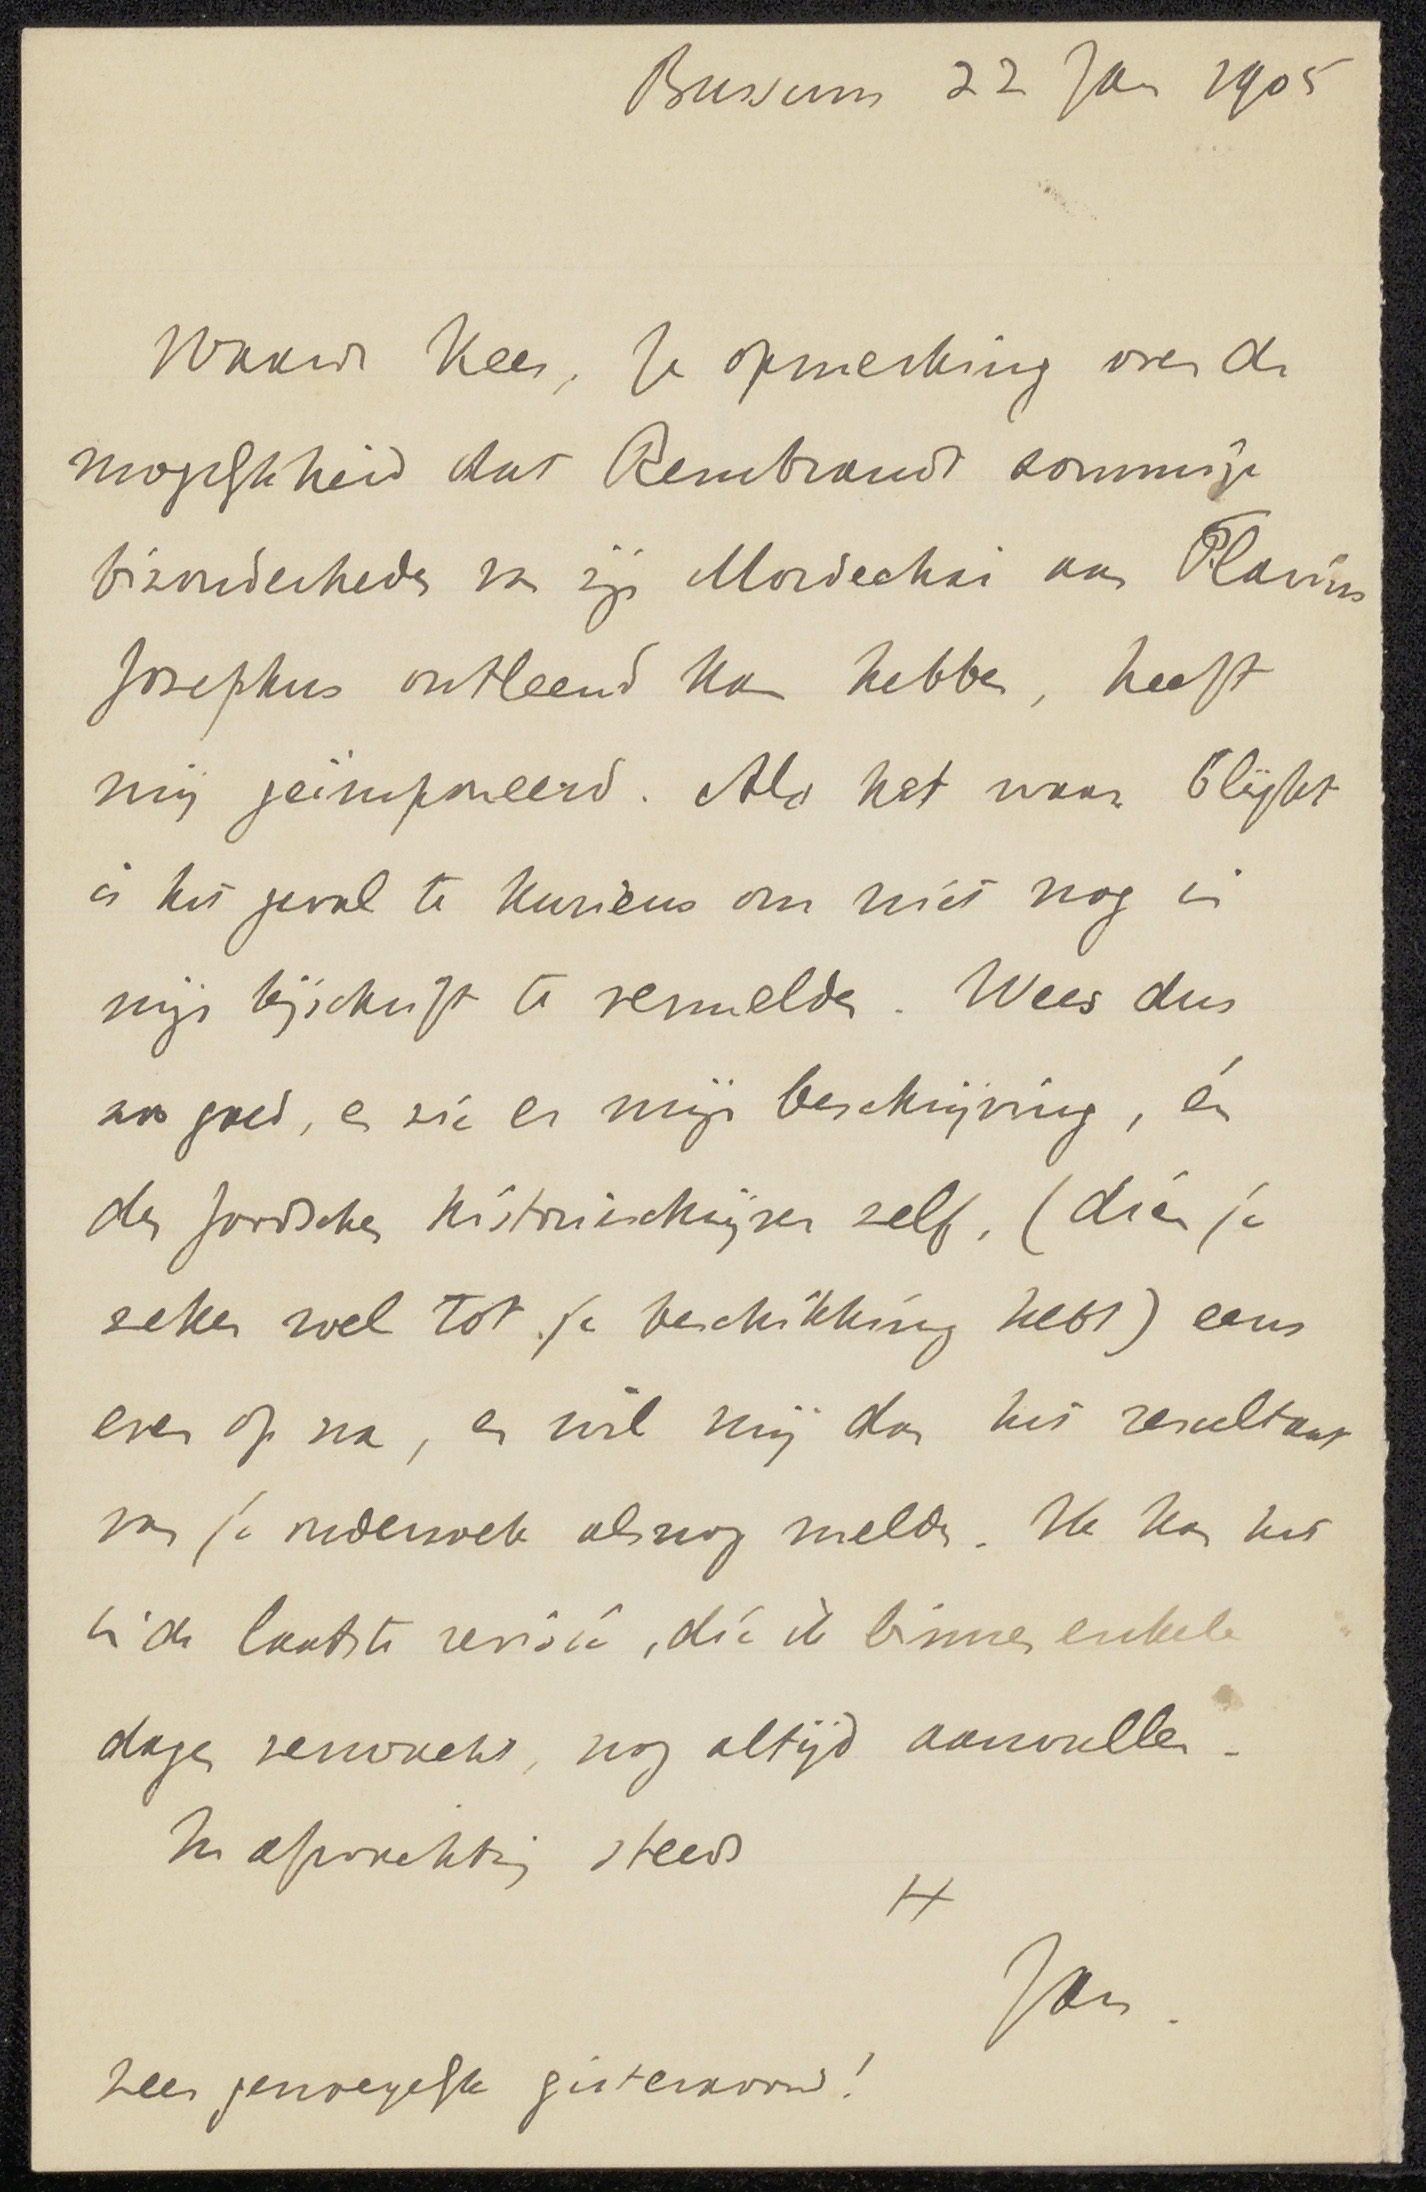 Bussum 22 Jan 1905
Waarde Kees, Je opmerking over de
mogelijkheid dat Rembrandt sommige
bizonderheden van zijn Mordechai aan Flavius
Josephus ontleend kan hebben, heeft
mij geïmponeerd. Als het waar blijkt
is het geval te kurieus om niet nog in
mijn bijschrift te vermelden. Wees dus
zoo goed, en zie er mijn beschrijving, én
den Joodschen historieschrijver zelf, (dien je
zeker wel tot je beschikking hebt) eens
even op na, en wil mij dan het resultaat
van je onderzoek alsnog melden. Ik kan het
in de laatste revisie, die ik binnen enkele
dagen verwacht, nog altijd aanvullen.
Je oprechtig steeds
Jan.
Zeer genoegelijk gisteravond!